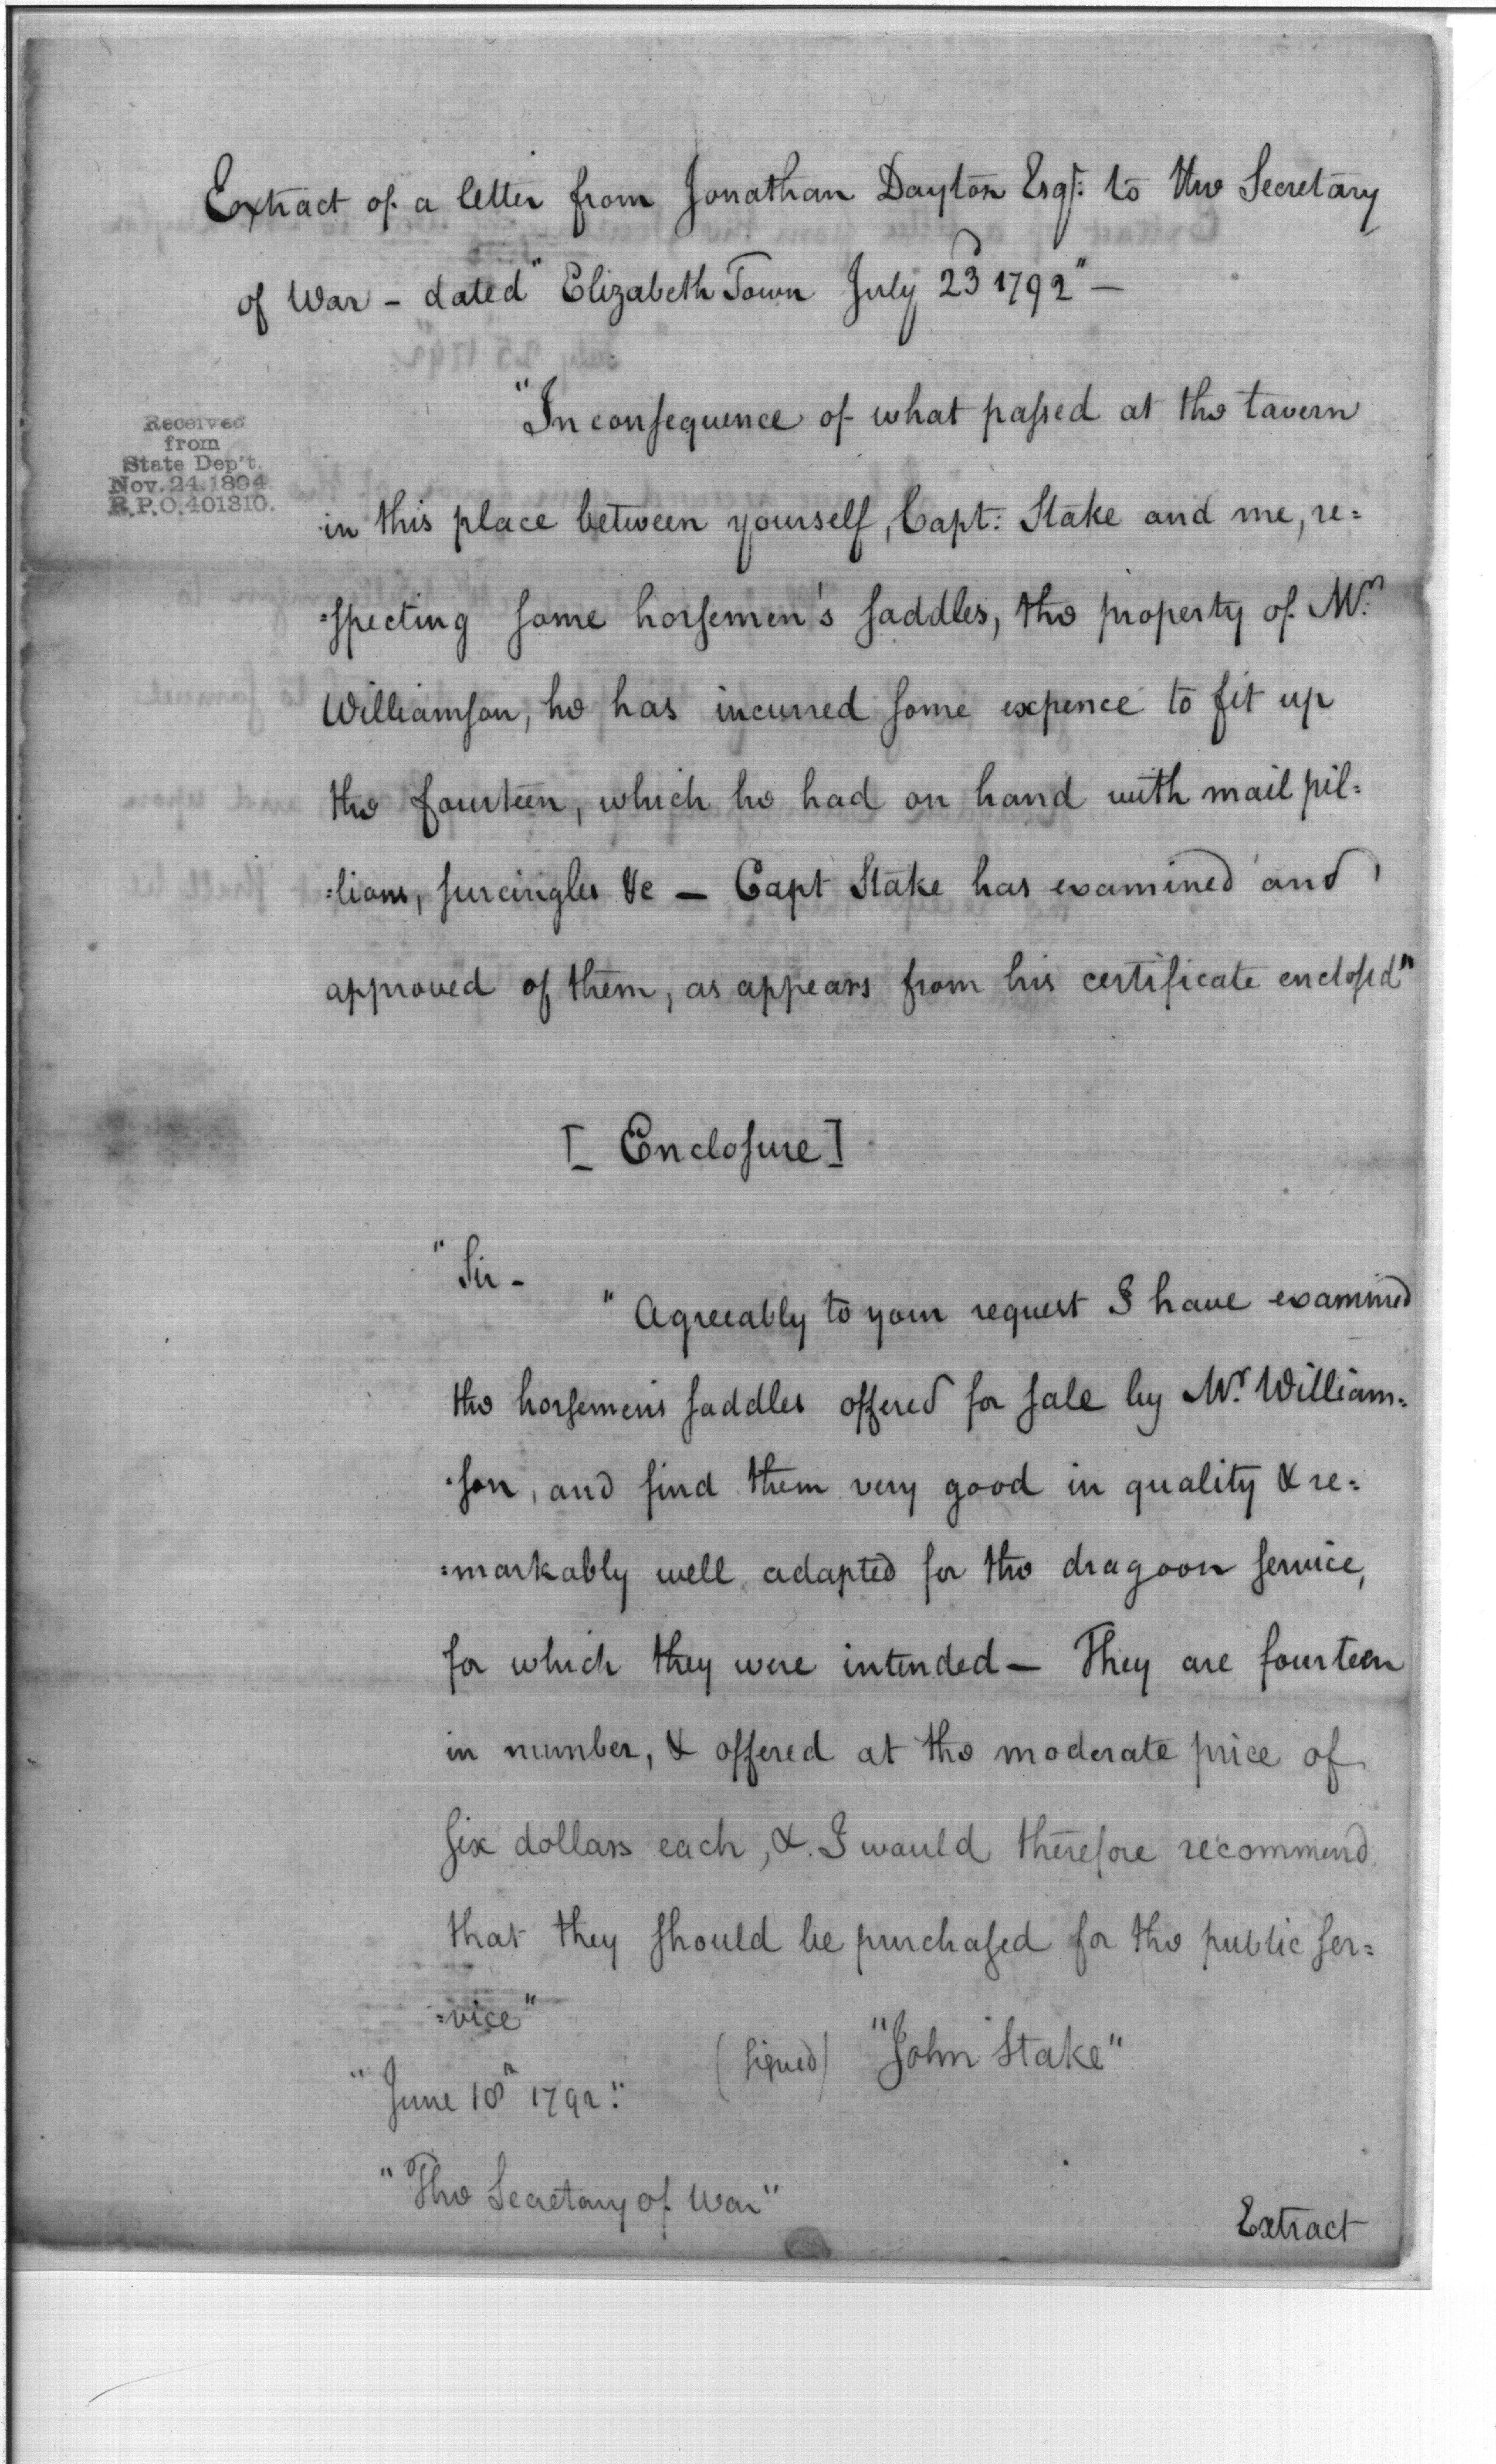 Extract of a letter from Jonathan Dayton Esqr: to the Secretary
of War - dated "Elizabeth Town July 23d 1792" —
Received
from
State Dep't.
Nov. 24. 1894
R.P.O. 401310.
"In consequence of what passed at the tavern
in this place between yourself, Capt: Stake and me, re=
=specting some horsemen's saddles, the property of Mr.
Williamson, he has incurred some expence to fit up
the fourteen, which he had on hand with mail pil=
=lions, surcingles &c — Capt Stake has examined and
approved of them, as appears from his certificate enclosed"
[ Enclosure ]
"Sir -
"Agreeably to your request I have examined
the horsemens saddles offered for sale by Mr. William=
=son, and find them very good in quality & re=
=markably well adapted for the dragoon service,
for which they were intended — They are fourteen
in number, & offered at the moderate price of
six dollars each, & I would therefore recommend
that they should be purchased for the public ser=
=vice"
(signed) "John Stake"
"June 18th 1792."
"The Secretary of War"
Extract